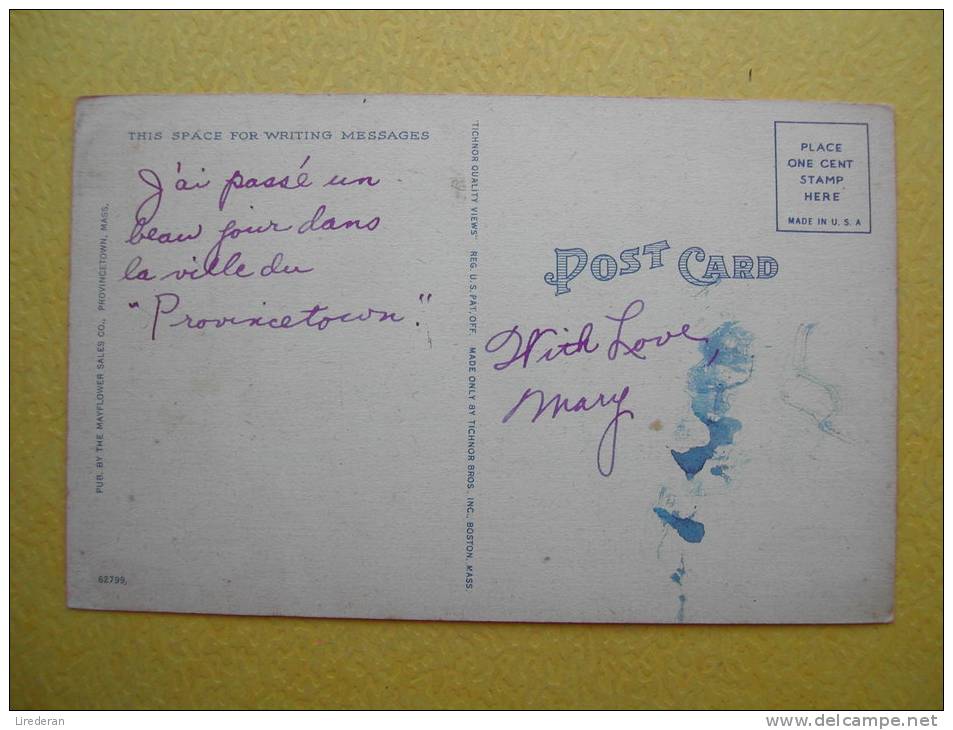 THIS SPACE FOR WRITING MESSAGES
J'ai passé un
beau jour dans
la ville du
"Provincetown."
PUB. BY THE MAYFLOWER SALES CO., PROVINCETOWN, MASS.
62799,
"TICHNOR QUALITY VIEWS" REG. U. S. PAT. OFF. MADE ONLY BY TICHNOR BROS. INC., BOSTON, MASS.
PLACE
ONE CENT
STAMP
HERE
MADE IN U. S. A
POST CARD
With Love,
Mary
Lirederan
www.delcampe.net